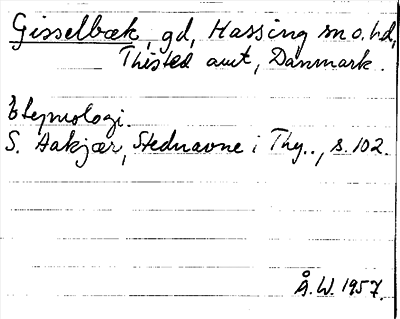 Gisselbæk, gd, Hassing sn o. hd,
Thisted amt, Danmark.
Etymologi.
S. Aakjær, Stednavne i Thy.., s. 102.
Å. W. 1957.